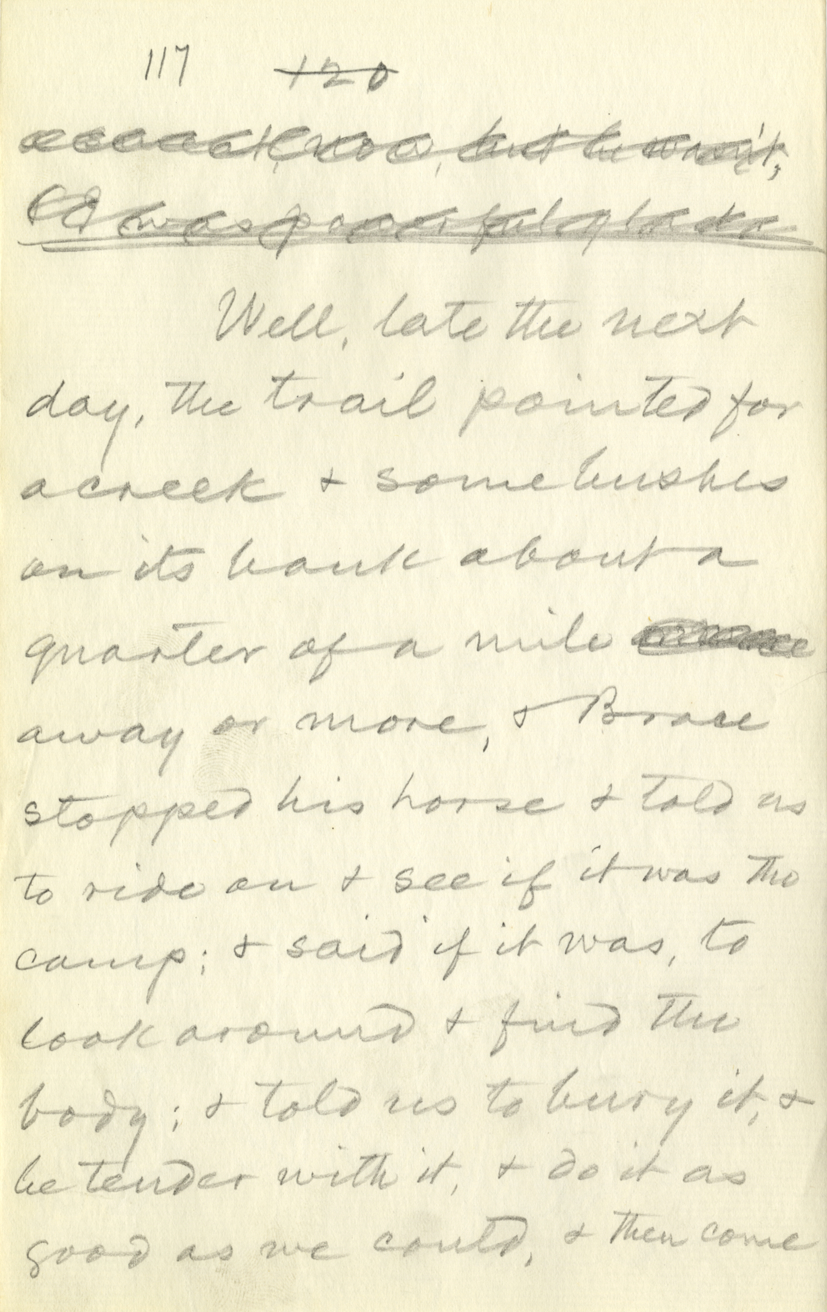 117 120
too, but he wasn't,
& I was powerful glad.
Well, late the next
day, the trail pointed for
a creek & some bushes
on its bank about a
quarter of a mile
away or more, & Brace
stopped his horse & told us
to ride on & see if it was the
camp; & said if it was, to
look around & find the
body; & told us to bury it, &
be tender with it, & do it as
good as we could, & then come